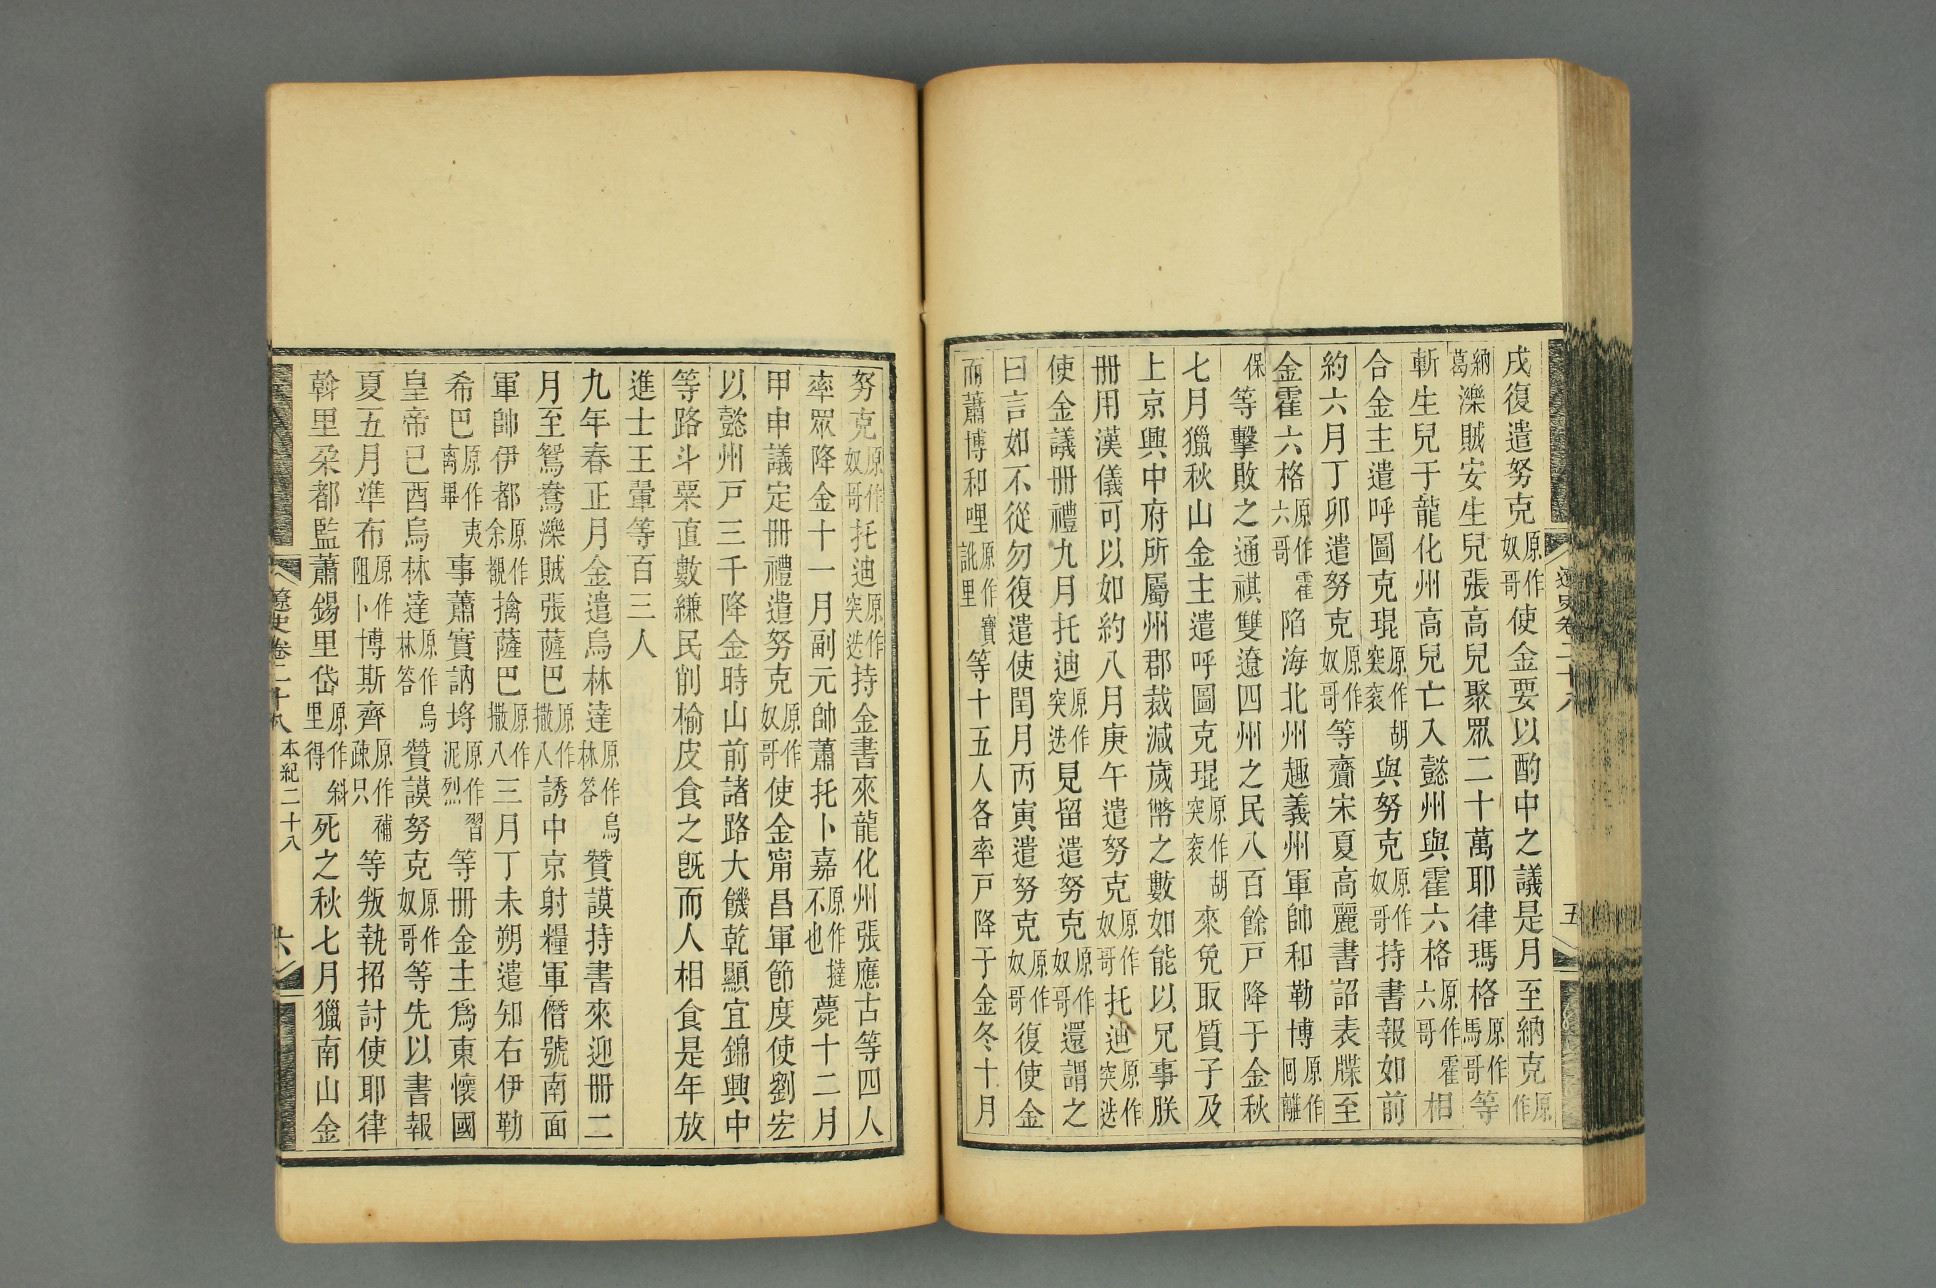 遼史卷二十八 五
戌復遣努克原作奴哥使金要以酌中之議是月至納克原作
納葛濼賊安生兒張高兒聚眾二十萬耶律瑪格原作馬哥等
斬生兒于龍化州高兒亡入懿州與霍六格原作霍六哥相
合金主遣呼圖克琨原作胡突袞與努克原作奴哥持書報如前
約六月丁卯遣努克原作奴哥等齎宋夏高麗書詔表牒至
金霍六格原作霍六哥陷海北州趣義州軍帥和勒博原作回離
保等擊敗之通祺雙遼四州之民八百餘戶降于金秋
七月獵秋山金主遣呼圖克琨原作胡突袞來免取質子及
上京興中府所屬州郡裁減歲幣之數如能以兄事朕
冊用漢儀可以如約八月庚午遣努克原作奴哥托迪原作突迭
使金議冊禮九月托迪原作突迭見留遣努克原作奴哥還謂之
曰言如不從勿復遣使閏月丙寅遣努克原作奴哥復使金
而蕭博和哩原作寶訛里等十五人各率戶降于金冬十月
努克原作奴哥托迪原作突迭持金書來龍化州張應古等四人
率眾降金十一月副元帥蕭托卜嘉原作撻不也薨十二月
甲申議定冊禮遣努克原作奴哥使金甯昌軍節度使劉宏
以懿州戶三千降金時山前諸路大饑乾顯宜錦興中
等路斗粟直數縑民削榆皮食之旣而人相食是年放
進士王翬等百三人
九年春正月金遣烏林達原作烏林荅贊謨持書來迎冊二
月至鴛鴦濼賊張薩巴原作撒八誘中京射糧軍僭號南面
軍帥伊都原作余覩擒薩巴原作撒八三月丁未朔遣知右伊勒
希巴原作夷離畢事蕭實訥埒原作習泥烈等冊金主爲東懷國
皇帝己酉烏林達原作烏林荅贊謨努克原作奴哥等先以書報
夏五月準布原作阻卜博斯齊原作補疎只等叛執招討使耶律
斡里朵都監蕭錫里岱原作斜里得死之秋七月獵南山金
遼史卷二十八 本紀二十八 六